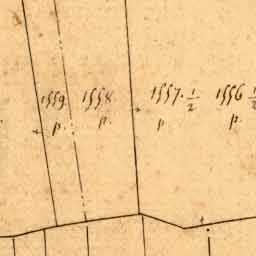 1559. 1558. 1557.½ 1556½
p. p. p. p.